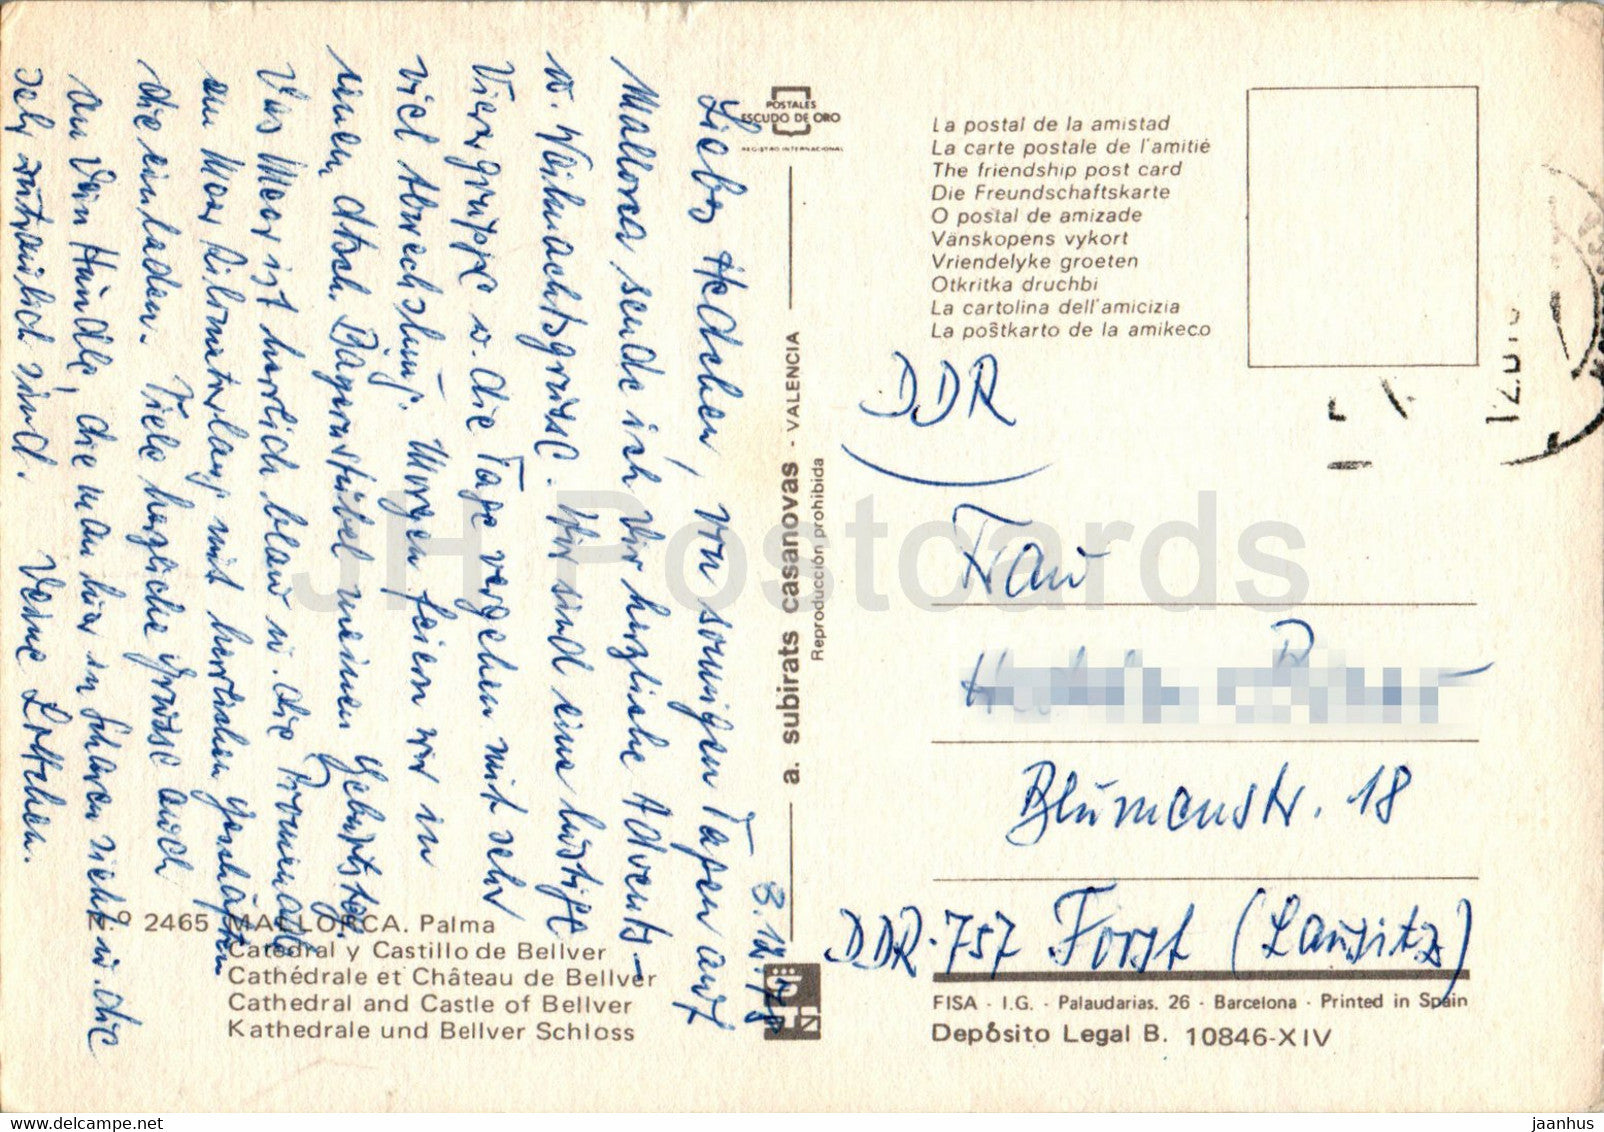 8.12.78
Liebes Hedchen, von sonnigen Tagen auf
Mallorca sende ich Dir herzliche Advents-
u. Weihnachtsgrüsse. Wir sind eine lustige
Vierergruppe u. die Tage vergehen mit sehr
viel Abwechslung. Morgen feiern wir in
einem dtsch. Bayernstübel meinen Geburtstag.
Das Meer ist herrlich blau u. die Promenade
am Meer kilometerlang mit herrlichen Geschäften
die einladen. Viele herzliche Grüsse auch
an Dein Hündle, die man hier in Scharen sieht u. die
sehr zutraulich sind. Deine Lottchen.
POSTALES
ESCUDO DE ORO
REGISTRO INTERNACIONAL
a. subirats casanovas - VALENCIA
Reproducción prohibida
La postal de la amistad
La carte postale de l'amitié
The friendship post card
Die Freundschaftskarte
O postal de amizade
Vänskopens vykort
Vriendelyke groeten
Otkritka druchbi
La cartolina dell'amicizia
La poŝtkarto de la amikeco
DDR
Frau
Blumenstr. 18
DDR-757 Forst (Lausitz)
N.º 2465 MALLORCA. Palma
Catedral y Castillo de Bellver
Cathédrale et Château de Bellver
Cathedral and Castle of Bellver
Kathedrale und Bellver Schloss
FISA - I.G. - Palaudarias, 26 - Barcelona - Printed in Spain
Depósito Legal B. 10846-XIV
JH Postcards
www.hippostcard.com
jaanhus